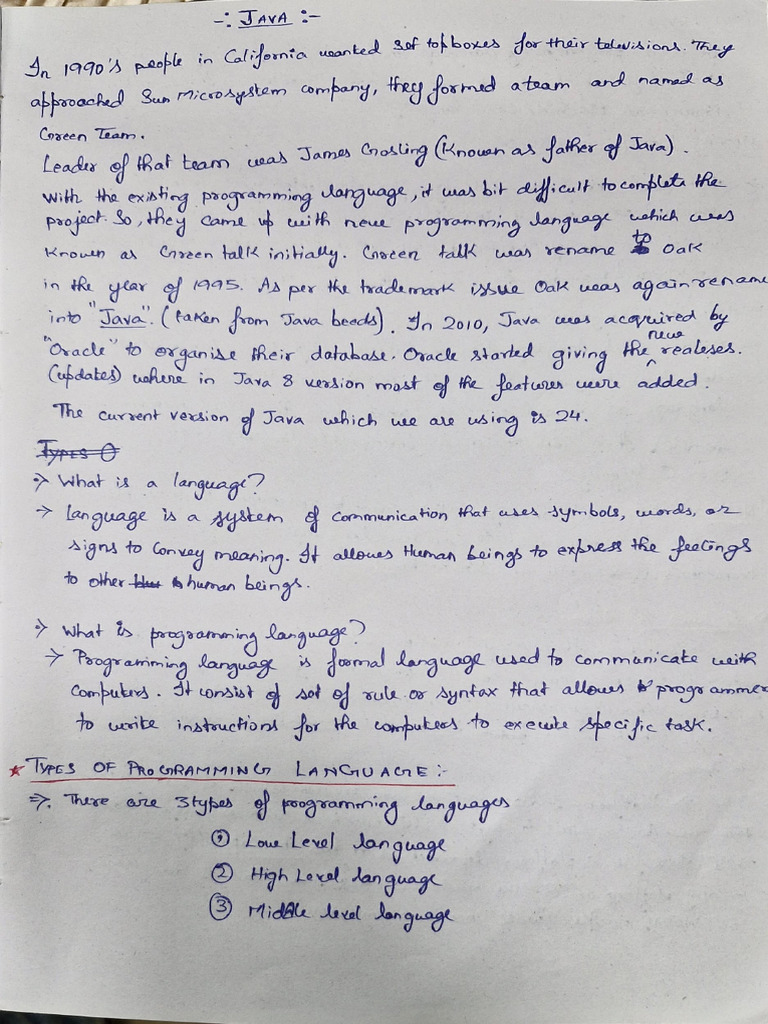 -: JAVA :-
In 1990's people in California wanted set topboxes for their televisions. They
approached Sun Microsystem company, they formed a team and named as
Green Team.
Leader of that team was James Gosling (Known as father of Java).
With the existing programming language, it was bit difficult to complete the
project. So, they came up with new programming language which was
Known as Green talk initially. Green talk was rename to Oak
in the year of 1995. As per the trademark issue Oak was again rename
into "Java". (taken from Java beeds). In 2010, Java was acquired by
"Oracle" to organise their database. Oracle started giving the new realeses.
(updates) where in Java 8 version most of the features were added.
The current version of Java which we are using is 24.
Types O
:> What is a language?
-> Language is a system of communication that uses symbols, words, or
signs to convey meaning. It allows Human beings to express the feelings
to other human beings.
:> What is programming language?
-> Programming language is formal language used to communicate with
computers. It consist of set of rule or syntax that allows programmer
to write instructions for the computers to execute specific task.
* TYPES OF PROGRAMMING LANGUAGE :-
=>. There are 3types of programming languages
① Low Level language
② High Level language
③ Middle level language